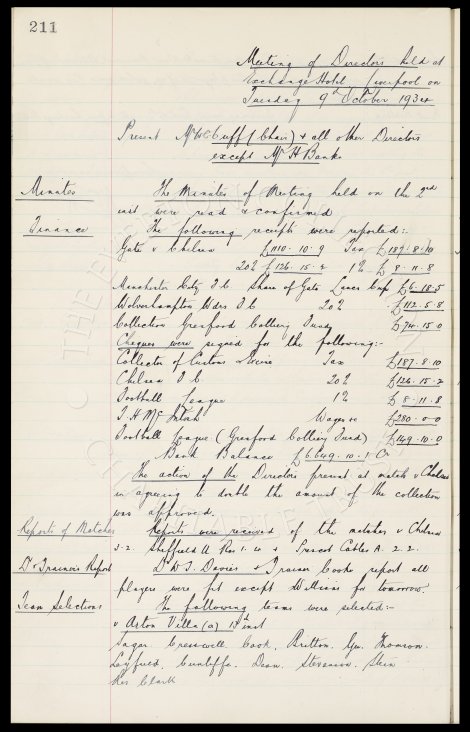 211
Meeting of Directors held at
Exchange Hotel Liverpool on
Tuesday 9th October 1934
Present Mr W C Cuff (Chair) & all other Directors
except Mr H Banks
Minutes The Minutes of Meeting held on the 2nd
inst were read & confirmed
Finance The following receipts were reported:-
Gate v Chelsea £1110.10.9 Tax £187.8.10
20% £126.15.2 1% £8.11.8
Manchester City F C Share of Gate Lancs Cup £6.18.5
Wolverhampton Wdrs F C 20% £112.5.8
Collection Gresford Colliery Fund £74.15.0
Cheques were signed for the following:-
Collector of Customs & Excise Tax £187.8.10
Chelsea F C 20% £126.15.2
Football League 1% £8.11.8
T. H. McIntosh Wages £280.0.0
Football League (Gresford Colliery Fund) £149.10.0
Bank Balance £6,649.10.1 Cr
The action of the Directors present at match v Chelsea
in agreeing to double the amount of the collection
was approved.
Reports of Matches Reports were received of the matches v Chelsea
3-2 Sheffield U Res 1. & Prescot Cables A. 2.2.
Dr & Trainers Report Dr W. J. Davies & Trainer Cooke report all
players were fit except Williams for tomorrow.
Team Selections The following teams were selected:-
v Aston Villa (a) 13th inst
Sagar. Cresswell. Cook. Britton. Gee. Thomson.
Leyfield. Cunliffe. Dean. Stevenson. Stein
Res Clark